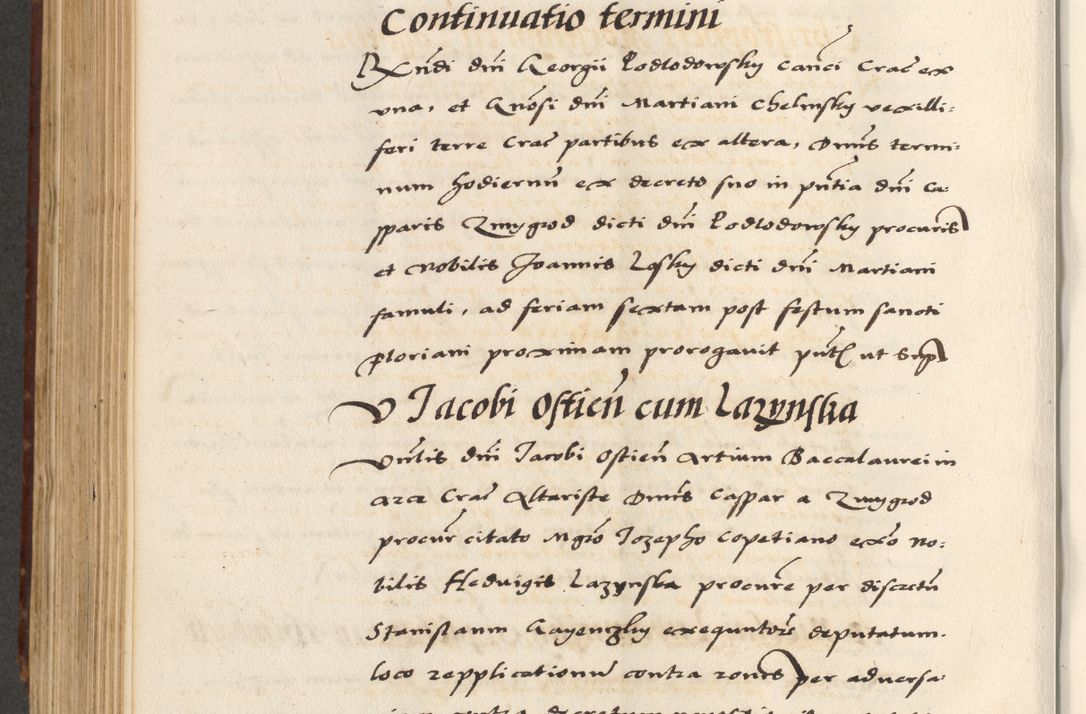 Continuatio termini
Rndi dni Georgii Podlodowsky canci Crac ex
una, et Gnosi dni Martiani Chelmsky vexilli-
feri terre Crac partibus ex altera, Dnus termi-
num hodiernu ex decreto suo in pntia dni Ca-
sparis Zmygrod dicti dni Podlodowsky procuris
et Nobilis Joannis Lqsky dicti dni Martiani
famuli, ad feriam sextam post festum sancti
Floriani proximam prorogavit pnt ut sup
V Jacobi Ostien cum Lazynska
Vnlis dni Jacobi Ostien Artium Baccalaurei in
arce Crac Altariste Dnus Caspar a Zmygrod
procur citato Mgro Jozepho Copetiano ex o no-
bilis Hedvigis Lazynska procure per discretu
Stanislaum exequutore deputatum
loco repplicationu contra rones per adversa-